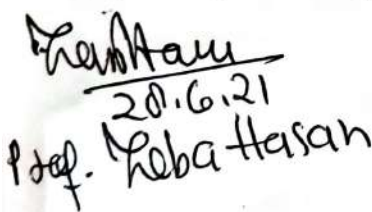 28.6.21
Prof. Zeba Hasan